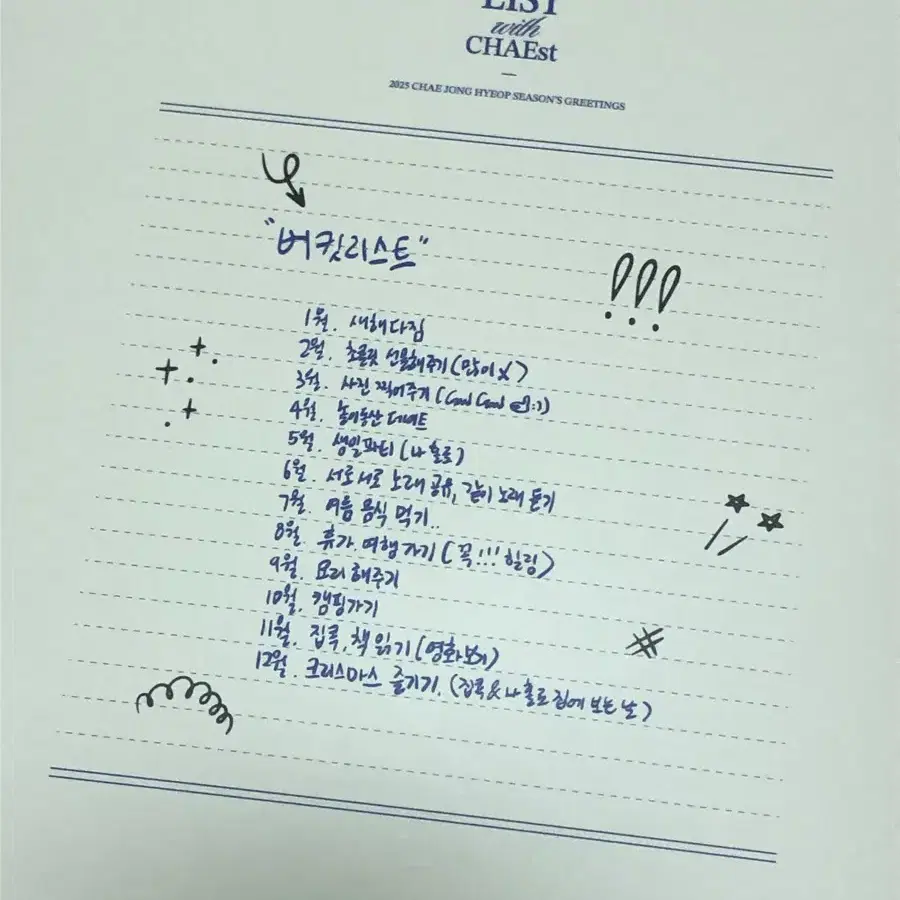 LIST
with
CHAEst
2025 CHAE JONG HYEOP SEASON'S GREETINGS
"버킷리스트"
1월. 새해다짐
2월. 초콜릿 선물해주기 (많이 X)
3월. 사진 찍어주기 (Good Good :))
4월. 놀이동산 데이트
5월. 생일파티 (나 홀로)
6월. 서로서로 노래 공유, 같이 노래 듣기
7월. 여름 음식 먹기..
8월. 휴가. 여행가기 (꼭!!! 힐링)
9월. 요리해주기
10월. 캠핑가기
11월. 집콕, 책 읽기 (영화보기)
12월. 크리스마스 즐기기. (집콕 & 나 홀로 집에 보는 날)